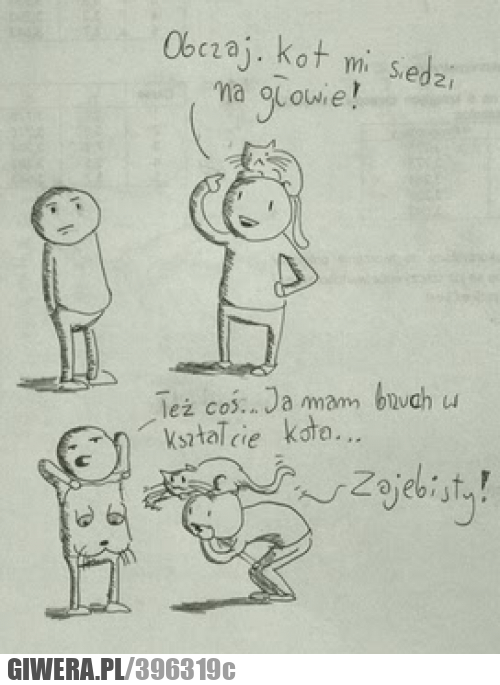 Obczaj. kot mi siedzi
na głowie!
Też coś... Ja mam brzuch w
kształcie kota...
Zajebisty!
GIWERA.PL/396319c